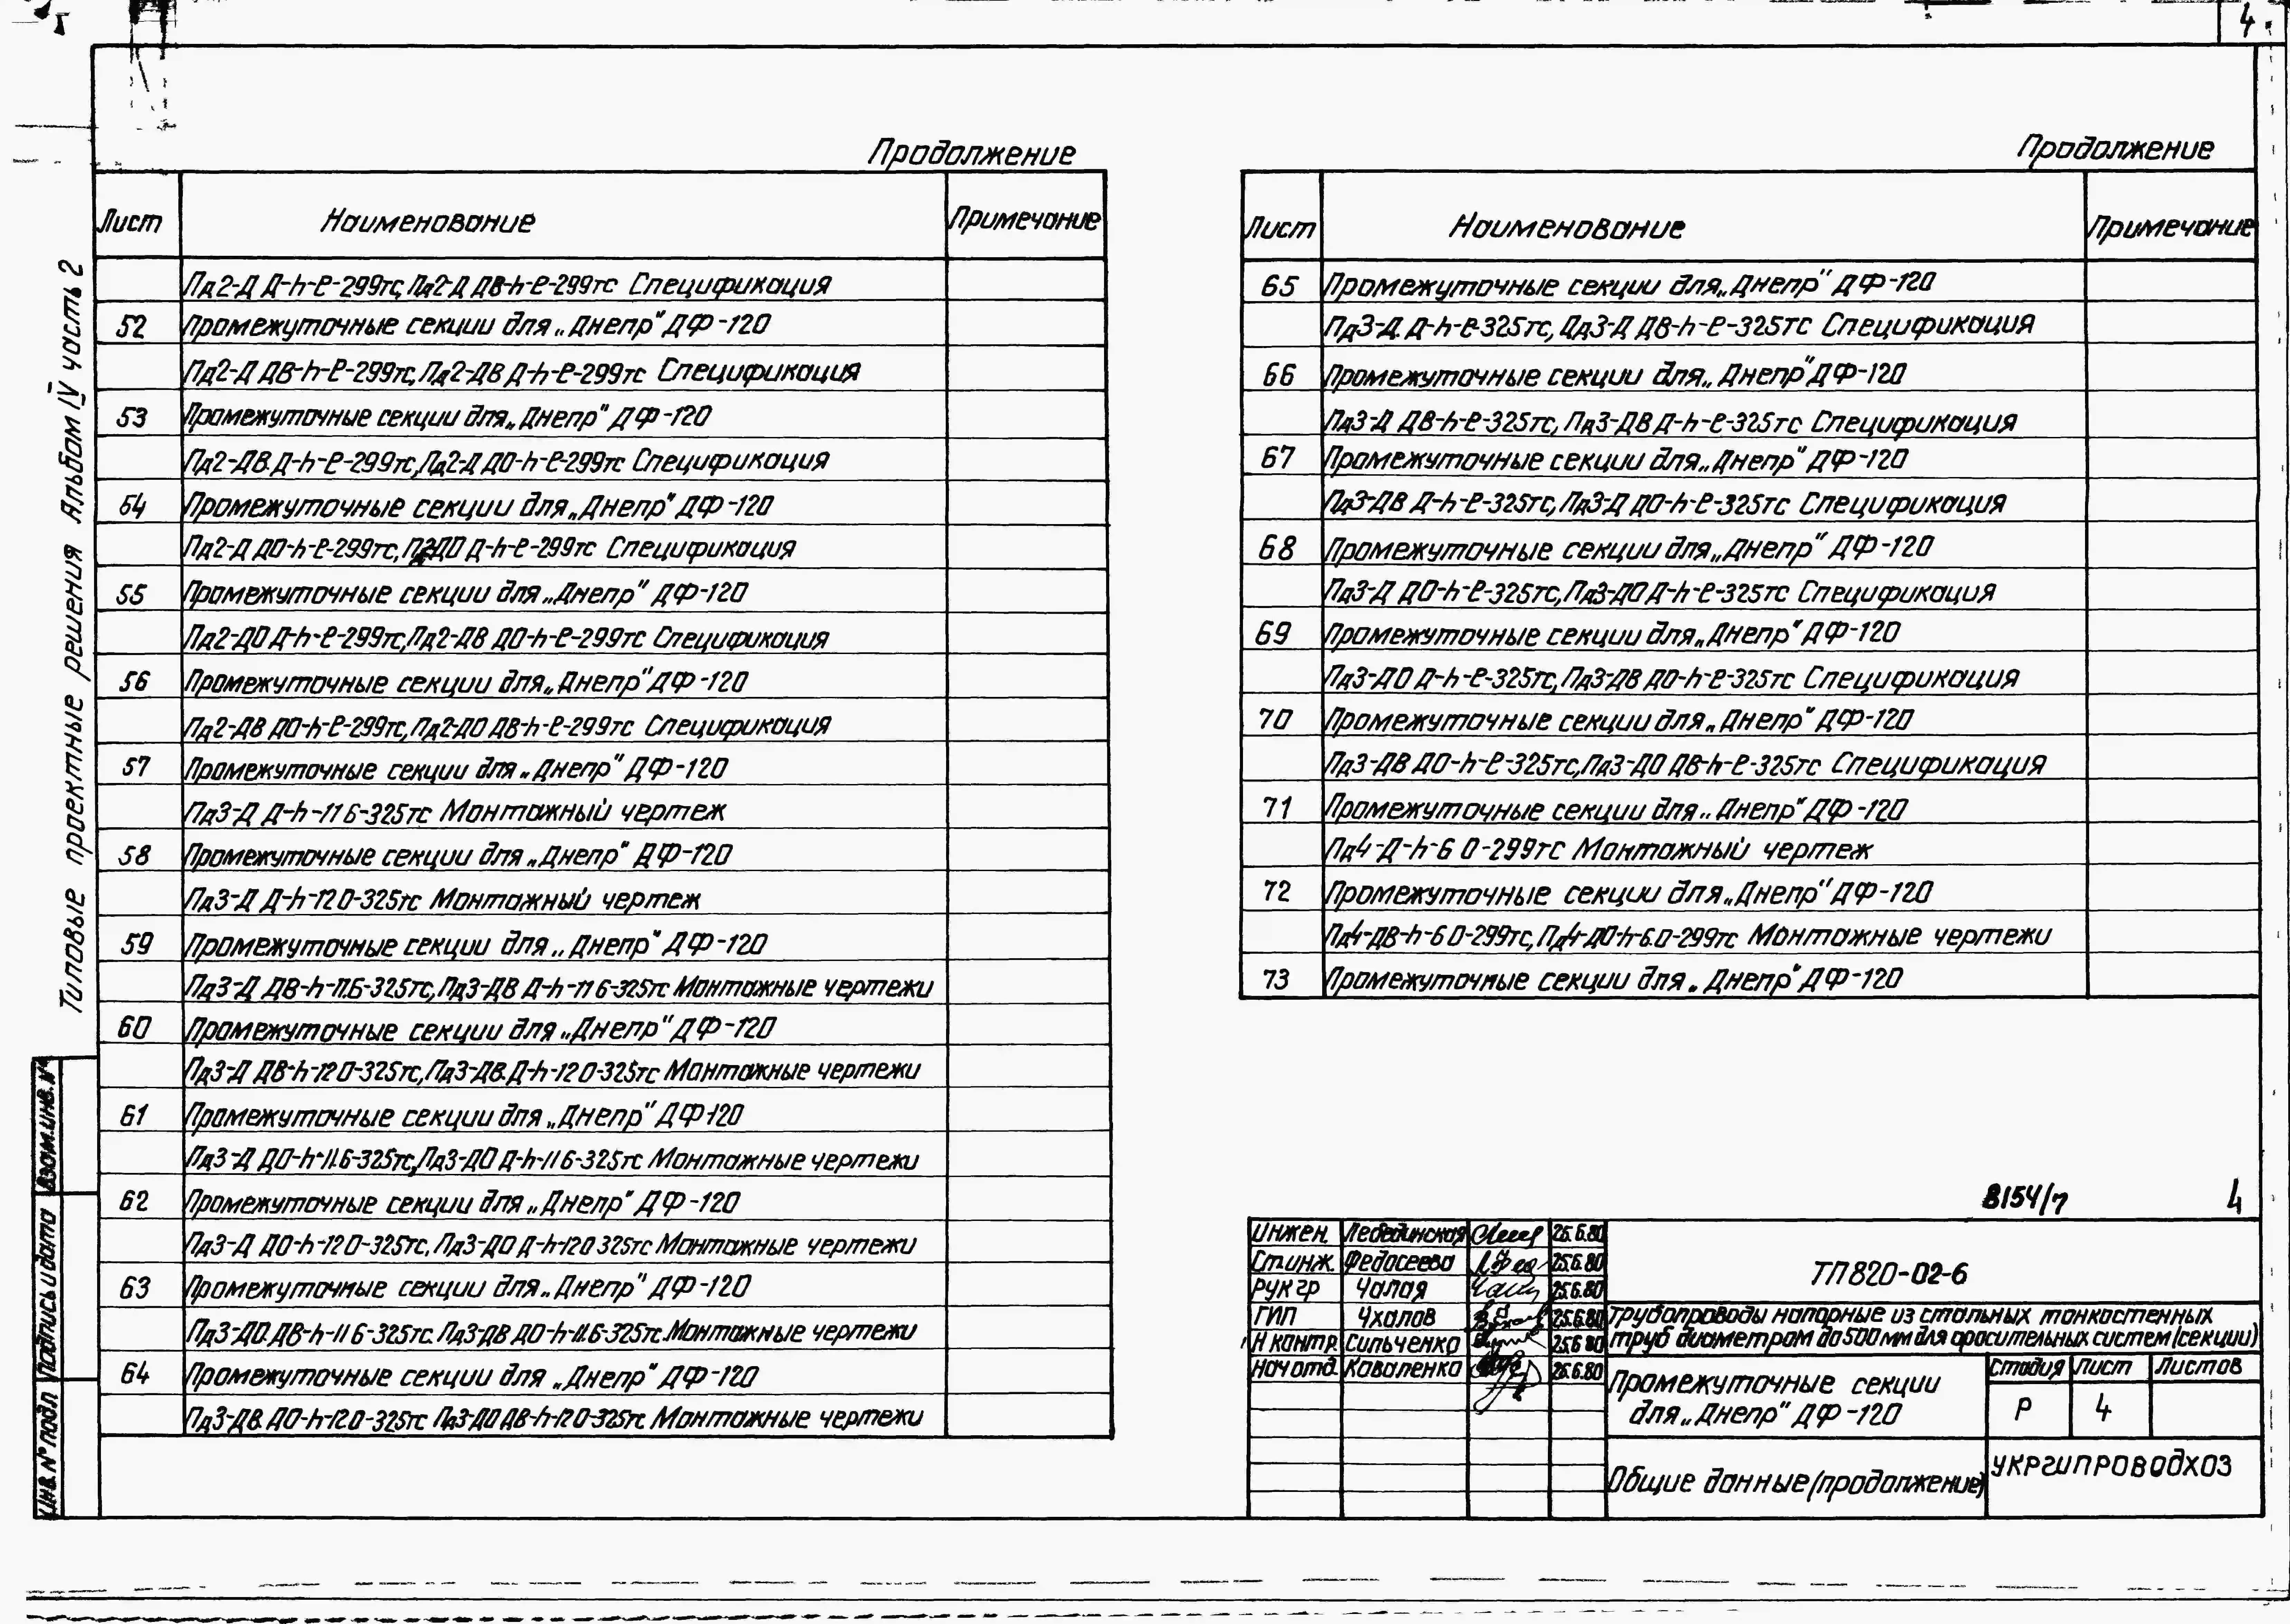 4
Типовые проектные решения Альбом IV часть 2
Продолжение
Лист Наименование Примечание
Пд2-Д Д-h-ℓ-299тс, Пд2-Д ДВ-h-ℓ-299тс Спецификация
52 Промежуточные секции для „Днепр" ДФ-120
Пд2-Д ДВ-h-ℓ-299тс, Пд2-ДВ Д-h-ℓ-299тс Спецификация
53 Промежуточные секции для „Днепр" ДФ-120
Пд2-ДВ Д-h-ℓ-299тс, Пд2-Д ДО-h-ℓ-299тс Спецификация
54 Промежуточные секции для „Днепр" ДФ-120
Пд2-Д ДО-h-ℓ-299тс, Пд2-ДО Д-h-ℓ-299тс Спецификация
55 Промежуточные секции для „Днепр" ДФ-120
Пд2-ДО Д-h-ℓ-299тс, Пд2-ДВ ДО-h-ℓ-299тс Спецификация
56 Промежуточные секции для „Днепр" ДФ-120
Пд2-ДВ ДО-h-ℓ-299тс, Пд2-ДО ДВ-h-ℓ-299тс Спецификация
57 Промежуточные секции для „Днепр" ДФ-120
Пд3-Д Д-h-11.6-325тс Монтажный чертеж
58 Промежуточные секции для „Днепр" ДФ-120
Пд3-Д Д-h-12.0-325тс Монтажный чертеж
59 Промежуточные секции для „Днепр" ДФ-120
Пд3-Д ДВ-h-11.6-325тс, Пд3-ДВ Д-h-11.6-325тс Монтажные чертежи
60 Промежуточные секции для „Днепр" ДФ-120
Пд3-Д ДВ-h-12.0-325тс, Пд3-ДВ Д-h-12.0-325тс Монтажные чертежи
61 Промежуточные секции для „Днепр" ДФ-120
Пд3-Д ДО-h-11.6-325тс, Пд3-ДО Д-h-11.6-325тс Монтажные чертежи
62 Промежуточные секции для „Днепр" ДФ-120
Пд3-Д ДО-h-12.0-325тс, Пд3-ДО Д-h-12.0 325тс Монтажные чертежи
63 Промежуточные секции для „Днепр" ДФ-120
Пд3-ДО ДВ-h-11.6-325тс. Пд3-ДВ ДО-h-11.6-325тс. Монтажные чертежи
64 Промежуточные секции для „Днепр" ДФ-120
Пд3-ДВ ДО-h-12.0-325тс Пд3-ДО ДВ-h-12.0-325тс Монтажные чертежи
Продолжение
Лист Наименование Примечание
65 Промежуточные секции для „Днепр" ДФ-120
Пд3-Д Д-h-ℓ-325тс, Пд3-Д ДВ-h-ℓ-325тс Спецификация
66 Промежуточные секции для „Днепр" ДФ-120
Пд3-Д ДВ-h-ℓ-325тс, Пд3-ДВ Д-h-ℓ-325тс Спецификация
67 Промежуточные секции для „Днепр" ДФ-120
Пд3-ДВ Д-h-ℓ-325тс, Пд3-Д ДО-h-ℓ-325тс Спецификация
68 Промежуточные секции для „Днепр" ДФ-120
Пд3-Д ДО-h-ℓ-325тс, Пд3-ДО Д-h-ℓ-325тс Спецификация
69 Промежуточные секции для „Днепр" ДФ-120
Пд3-ДО Д-h-ℓ-325тс, Пд3-ДВ ДО-h-ℓ-325тс Спецификация
70 Промежуточные секции для „Днепр" ДФ-120
Пд3-ДВ ДО-h-ℓ-325тс, Пд3-ДО ДВ-h-ℓ-325тс Спецификация
71 Промежуточные секции для „Днепр" ДФ-120
Пд4-Д-h-6.0-299тс Монтажный чертеж
72 Промежуточные секции для „Днепр" ДФ-120
Пд4-ДВ-h-6.0-299тс, Пд4-ДО-h-6.0-299тс Монтажные чертежи
73 Промежуточные секции для „Днепр" ДФ-120
8154/7 4
Инжен. Лебединская 25.6.80
Ст.инж. Федосеева 25.6.80
Рук гр Чалая 25.6.80
ГИП Чхалов 25.6.80
Н контр. Сильченко 25.6.80
Нач отд. Коваленко 26.6.80
ТП820-02-6
Трубопроводы напорные из стальных тонкостенных
труб диаметром до 500 мм для оросительных систем (секции)
Промежуточные секции
для „Днепр" ДФ-120
Стадия Лист Листов
Р 4
Общие данные (продолжение)
Укргипроводхоз
Взам.инв. №
Подпись и дата
Инв. № подл